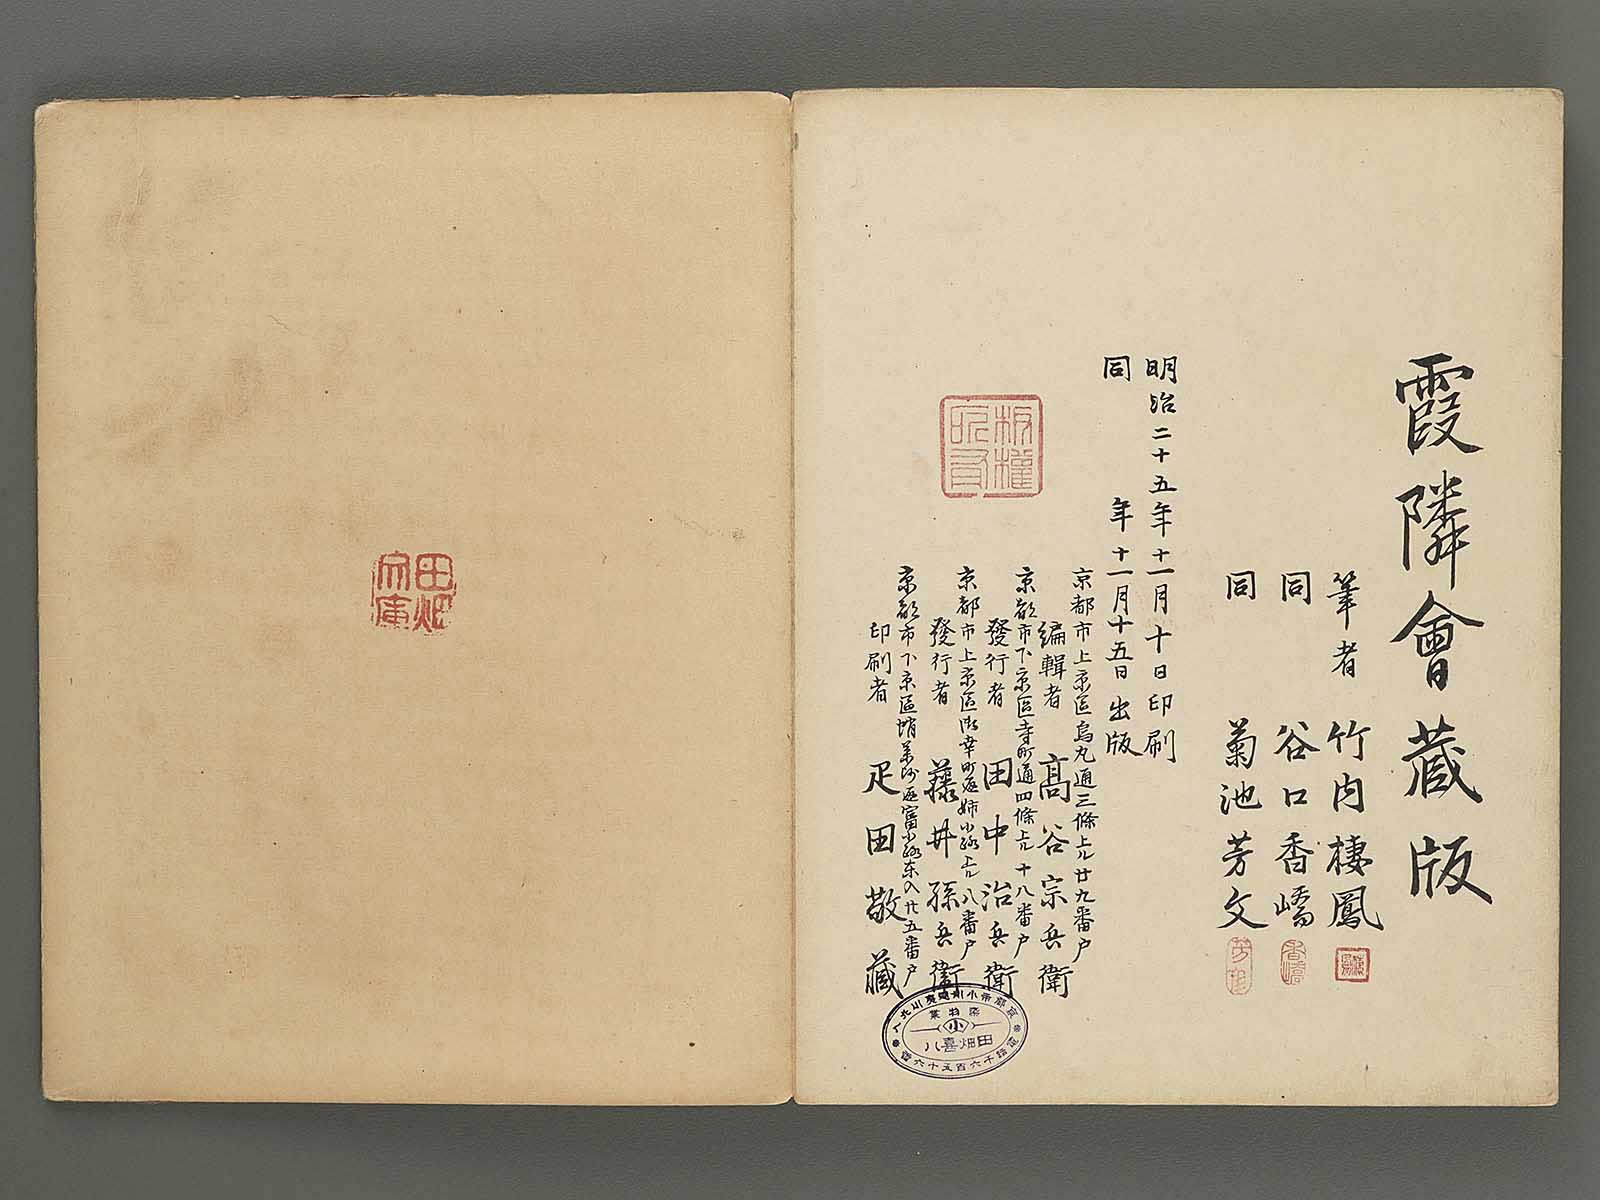 霞隣會蔵版
筆者 竹内棲鳳
同 谷口香嶠
同 菊池芳文
明治二十五年十一月十日印刷
同 年十一月十五日出版
京都市上京區烏丸通三條上ル廿九番戸
編輯者 高谷宗兵衛
京都市下京區寺町通四條上ル十八番戸
發行者 田中治兵衛
京都市上京區御幸町通姉小路上ル八番戸
發行者 藤井孫兵衛
京都市下京區蛸薬師通富小路東入廿五番戸
印刷者 疋田敬蔵
版權所有
棲鳳
香嶠
田畑喜八
染物業
小
電話千六百五十六番
田畑文庫